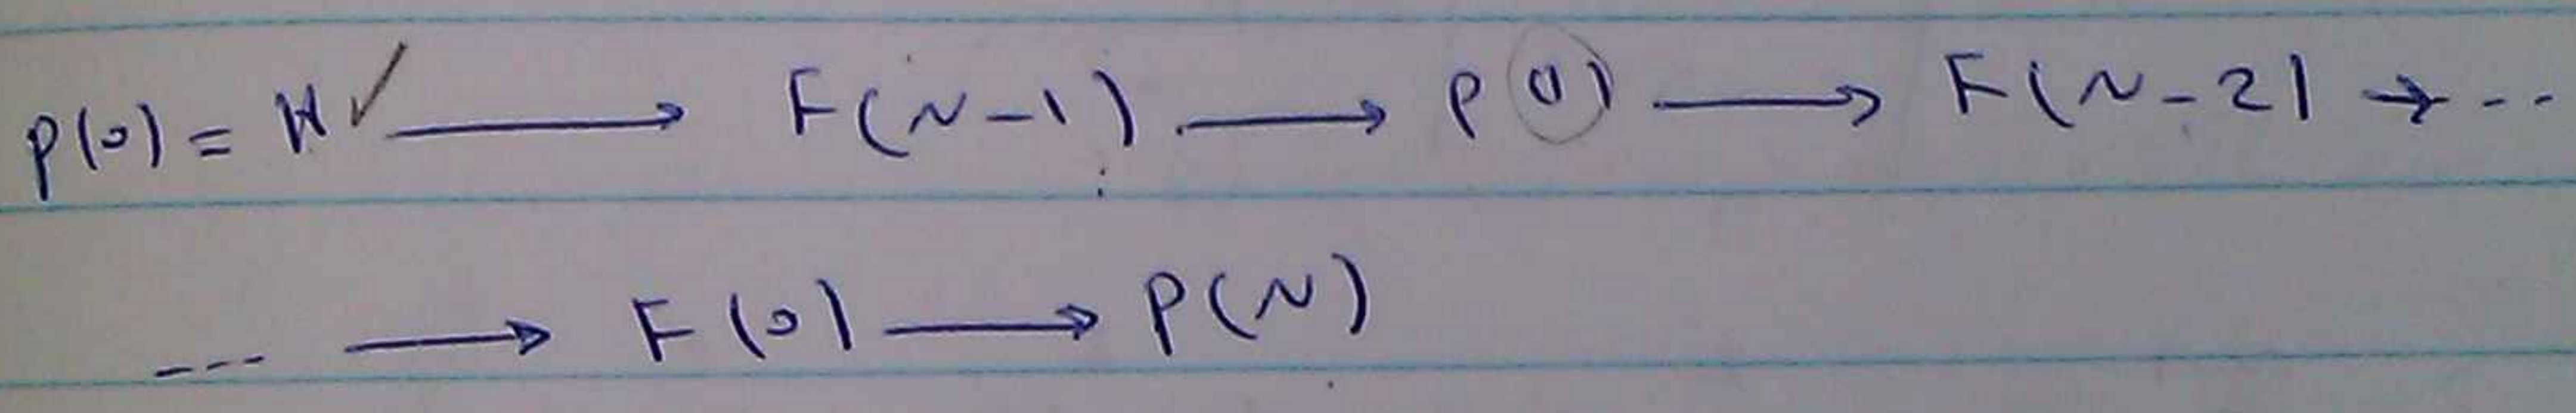 P(0) = H ✓ ⟶ F(N-1) ⟶ P(1) ⟶ F(N-2) → ...
--- ⟶ F(0) ⟶ P(N)